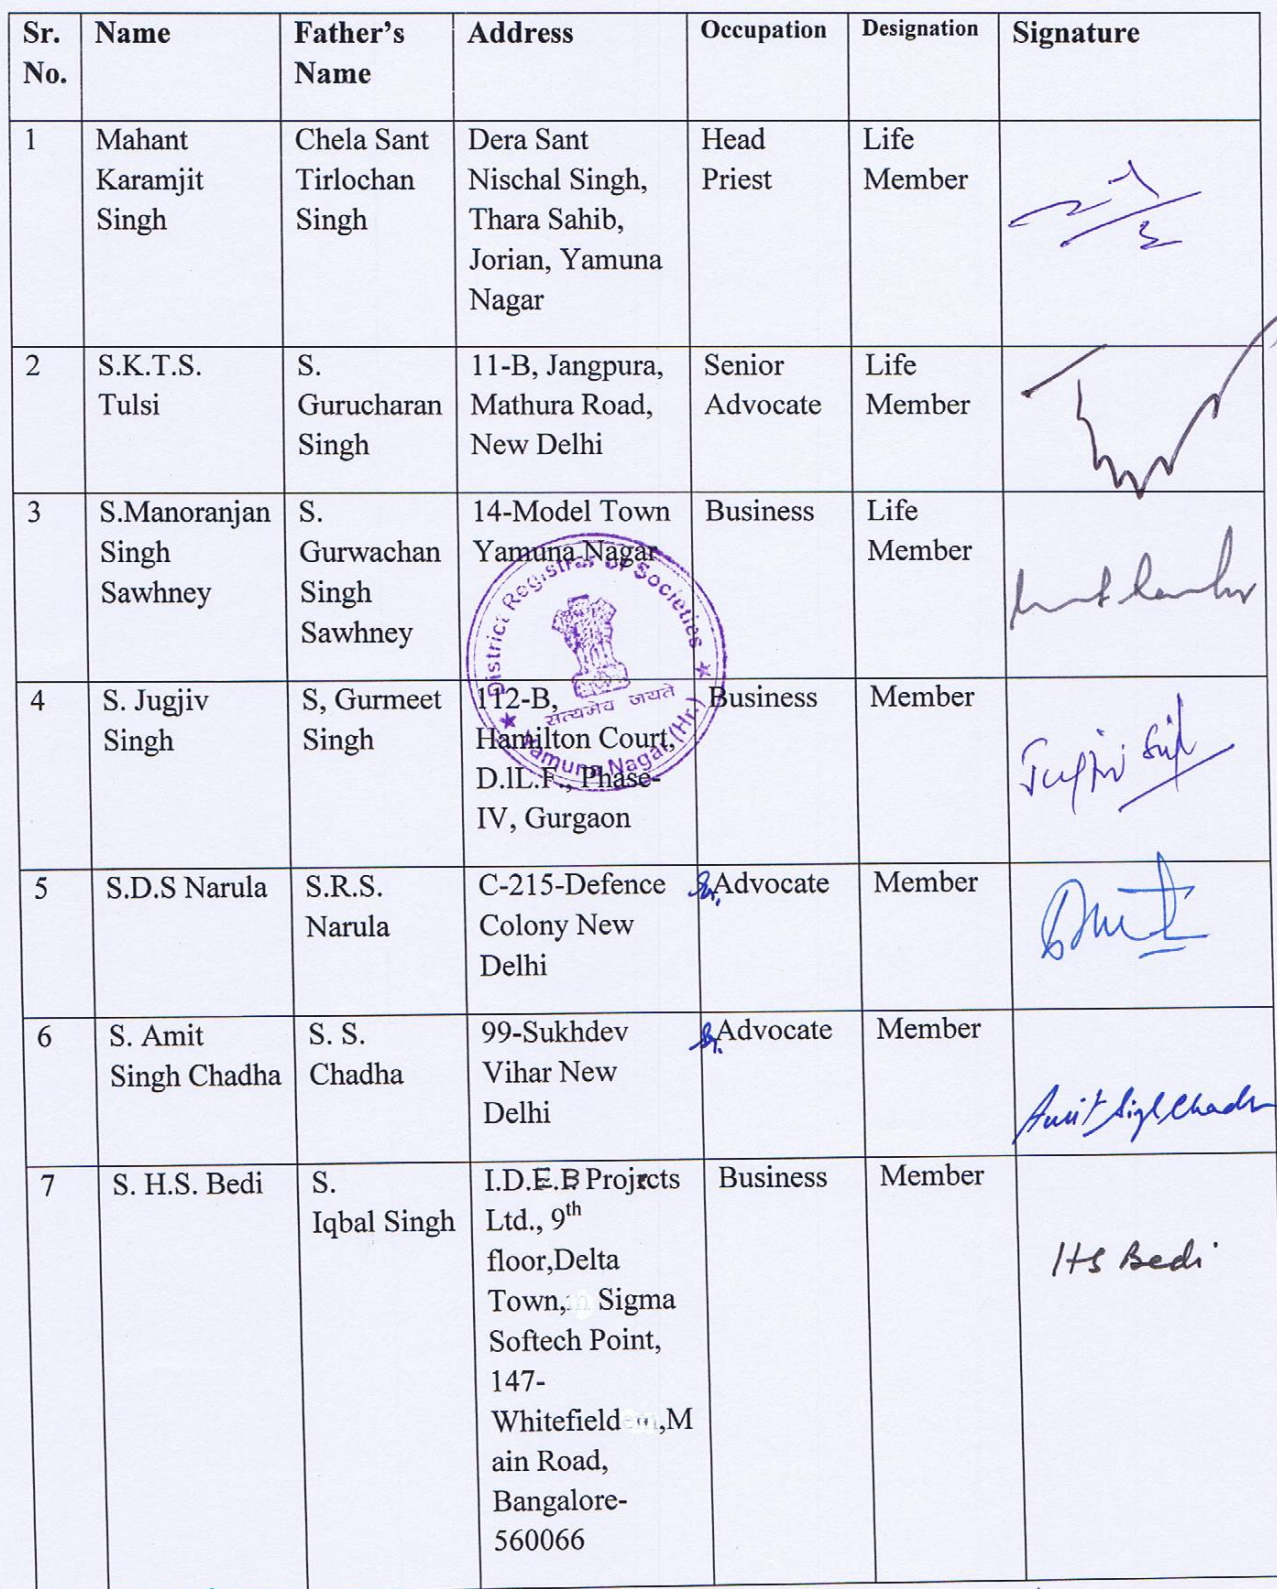 Sr. No. Name Father's Name Address Occupation Designation Signature
1 Mahant Karamjit Singh Chela Sant Tirlochan Singh Dera Sant Nischal Singh, Thara Sahib, Jorian, Yamuna Nagar Head Priest Life Member
2 S.K.T.S. Tulsi S. Gurucharan Singh 11-B, Jangpura, Mathura Road, New Delhi Senior Advocate Life Member
3 S.Manoranjan Singh Sawhney S. Gurwachan Singh Sawhney 14-Model Town Yamuna Nagar Business Life Member
District Registrar of Societies
सत्यमेव जयते
Yamuna Nagar (Hr.)
4 S. Jugjiv Singh S, Gurmeet Singh 112-B, Hamilton Court, D.lL.F., Phase-IV, Gurgaon Business Member
5 S.D.S Narula S.R.S. Narula C-215-Defence Colony New Delhi Sr. Advocate Member
6 S. Amit Singh Chadha S. S. Chadha 99-Sukhdev Vihar New Delhi Sr. Advocate Member Amit Singh Chadha
7 S. H.S. Bedi S. Iqbal Singh I.D.E.B Projects Ltd., 9th floor,Delta Town, Sigma Softech Point, 147-Whitefield ,Main Road, Bangalore-560066 Business Member HS Bedi